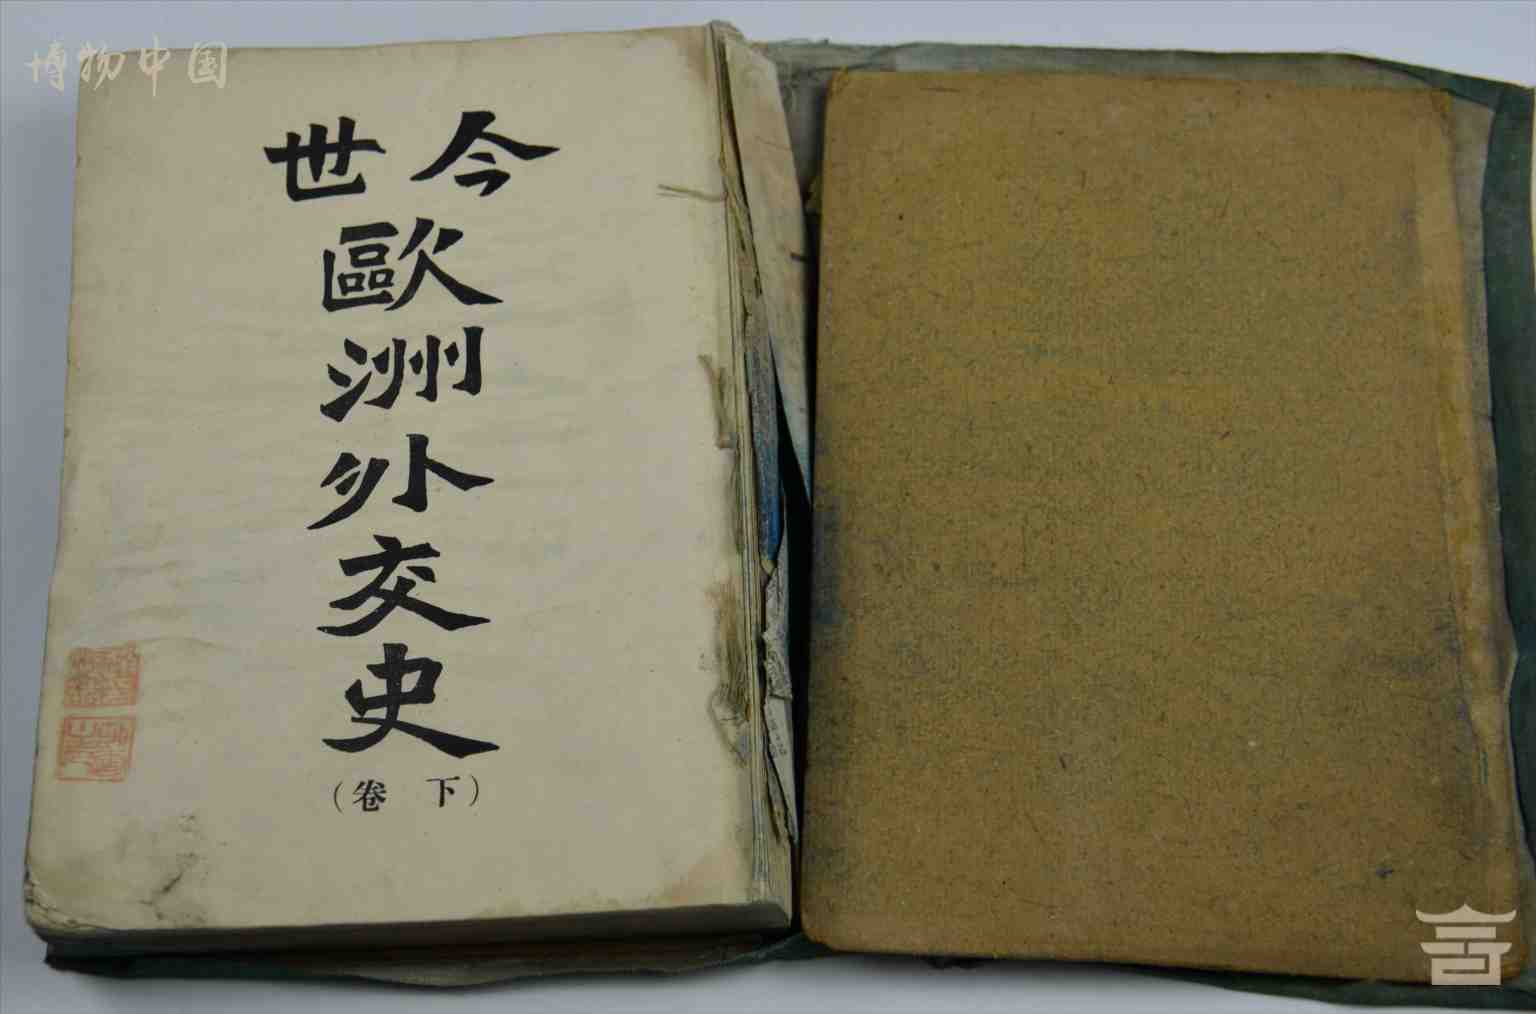 博物中国
今世
歐洲外交史
(下卷)